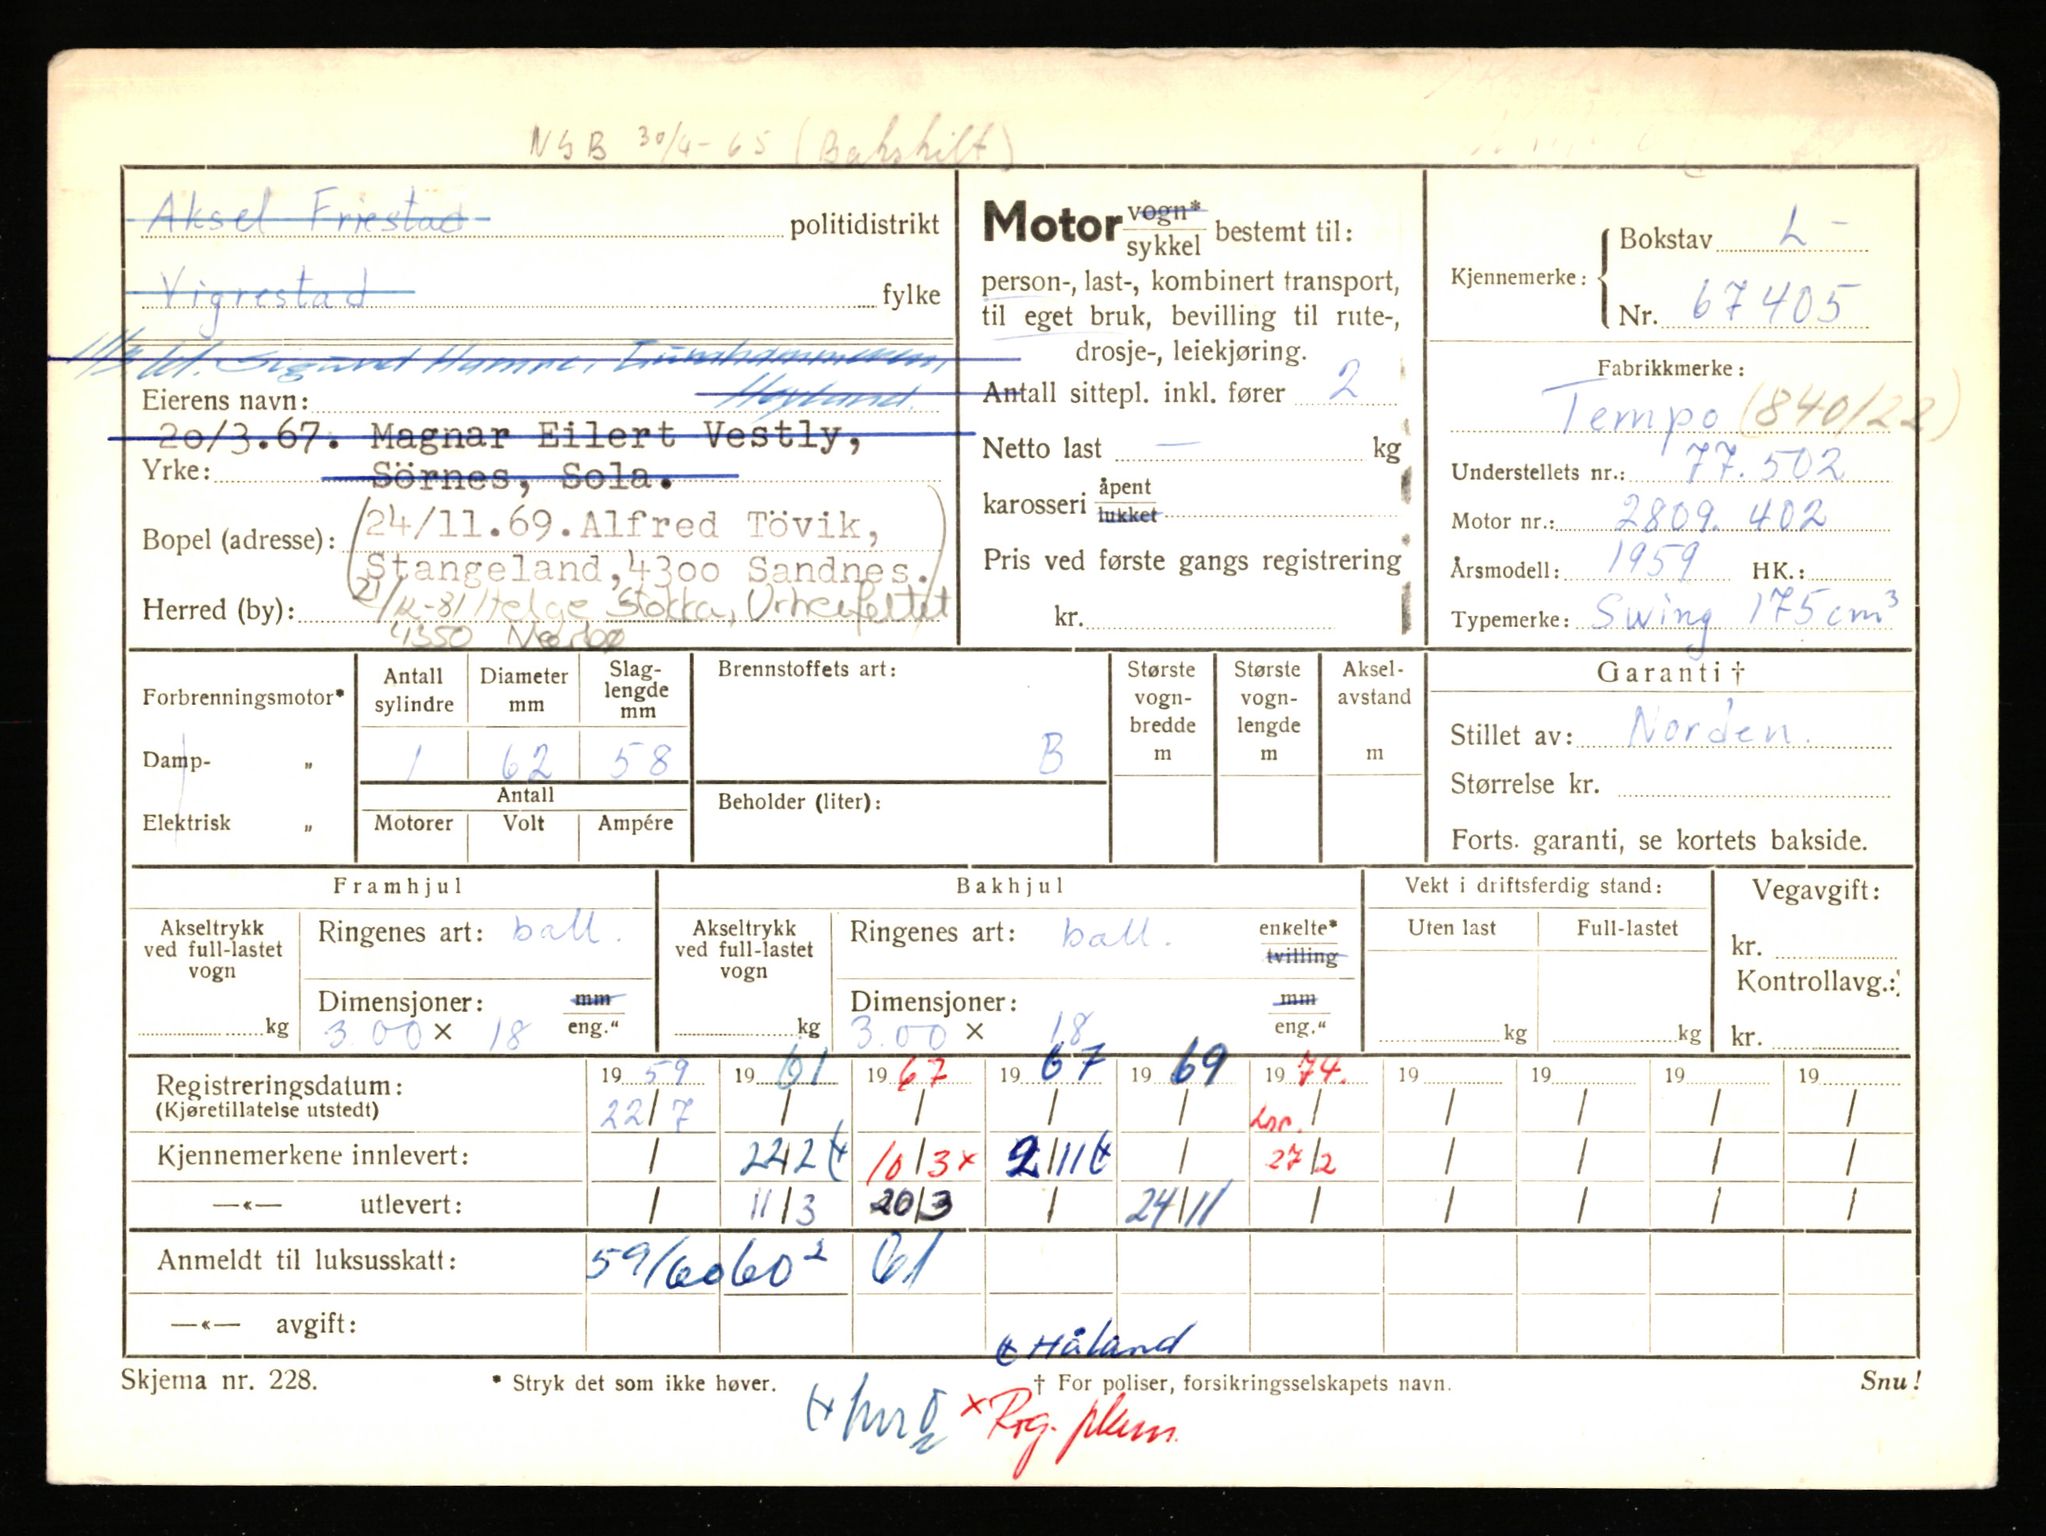 NSB 30/4-65 (Bakskilt)
Aksel Friestad politidistrikt
Vigrestad fylke
11/3 61. Sigurd Hamre,
Høyland.
Eierens navn:
20/3.67. Magnar Eilert Vestly,
Yrke: Sörnes, Sola.
24/11.69. Alfred Tövik,
Bopel (adresse):
Stangeland, 4300 Sandnes.
Herred (by): 21/12-81 Helge Stokka, Orheifeltet
4350 Nærbø
Motor vogn*
sykkel bestemt til:
person-, last-, kombinert transport,
til eget bruk, bevilling til rute-,
drosje-, leiekjøring.
Antall sittepl. inkl. fører 2
Netto last — kg
karosseri åpent
lukket
Pris ved første gangs registrering
kr.
Kjennemerke: Bokstav L-
Nr. 67405
Fabrikkmerke:
Tempo (840/22)
Understellets nr.: 77.502
Motor nr.: 2809.402
Årsmodell: 1959 HK.:
Typemerke: Swing 175 cm³
Forbrenningsmotor*
Damp- „
Elektrisk „
Antall sylindre Diameter mm Slag-lengde mm
1 62 58
Antall
Motorer Volt Ampére
Brennstoffets art:
B
Beholder (liter):
Største vogn-bredde m
Største vogn-lengde m
Aksel-avstand m
Garanti †
Stillet av: Norden.
Størrelse kr.
Forts. garanti, se kortets bakside.
Framhjul Bakhjul Vekt i driftsferdig stand: Vegavgift:
Akseltrykk ved full-lastet vogn
kg
Ringenes art: ball.
Dimensjoner: mm
3.00 × 18 eng.“
Akseltrykk ved full-lastet vogn
kg
Ringenes art: ball. enkelte*
tvilling
Dimensjoner: mm
3.00 × 18 eng.“
Uten last Full-lastet
kg kg
kr.
Kontrollavg.:
kr.
Registreringsdatum: 1959 1961 1967 1967 1969 1974. 19 19 19 19
(Kjøretillatelse utstedt) 22/7 / / / / / / / / /
Kjennemerkene innlevert: / 24/2 10/3 × 2/11 / 27/2 / / / /
—«— utlevert: / 11/3 20/3 / 24/11 / / / / /
Anmeldt til luksusskatt: 59/60 60² 61
—«— avgift:
Håland
Skjema nr. 228. * Stryk det som ikke høver. † For poliser, forsikringsselskapets navn. Snu!
× Reg. plum.